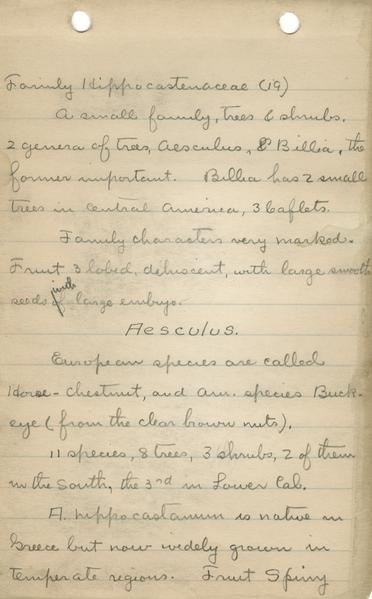 Family Hippocastenaceae (19)
A small family, trees & shrubs.
2 genera of trees, Aesculus, & Billia, the
former important. Billia has 2 small
trees in Central America, 3 leaflets.
Family characters very marked.
Fruit 3 lobed, dehiscent, with large smooth
seeds with large embryo.
Aesculus.
European species are called
Horse-Chestnut, and Am. species Buck-
eye (from the clear brown nuts).
11 species, 8 trees, 3 shrubs, 2 of them
in the South, the 3rd in Lower Cal.
A. hippocastanum is native in
Greece but now widely grown in
temperate regions. Fruit Spiny